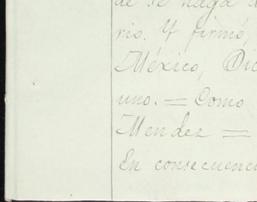 de se haga
rio. Y firmó,
México, Dic
uno. = Como
Mendez =
En consecuenci